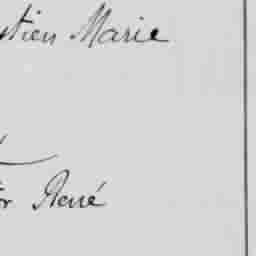 stien Marie
or René